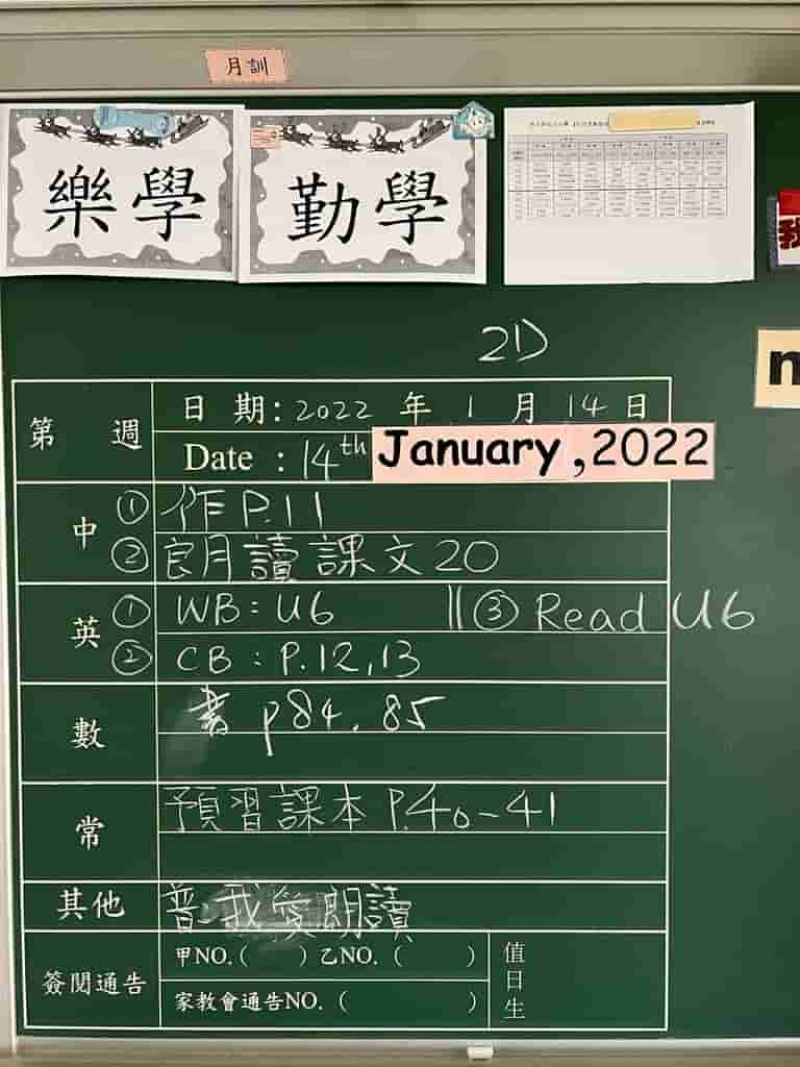 月訓
樂學
勤學
2D
第 週
日 期: 2022 年 1 月 14 日
Date : 14th January ,2022
中
① 作 P.11
② 朗讀課文20
英
① WB: U6 ‖ ③ Read U6
② CB : P.12,13
數
書 p84, 85
常
預習課本 P.40-41
其他
普:我愛朗讀
簽閱通告
甲NO.( ) 乙NO. ( )
家教會通告NO. ( )
值日生
我
n